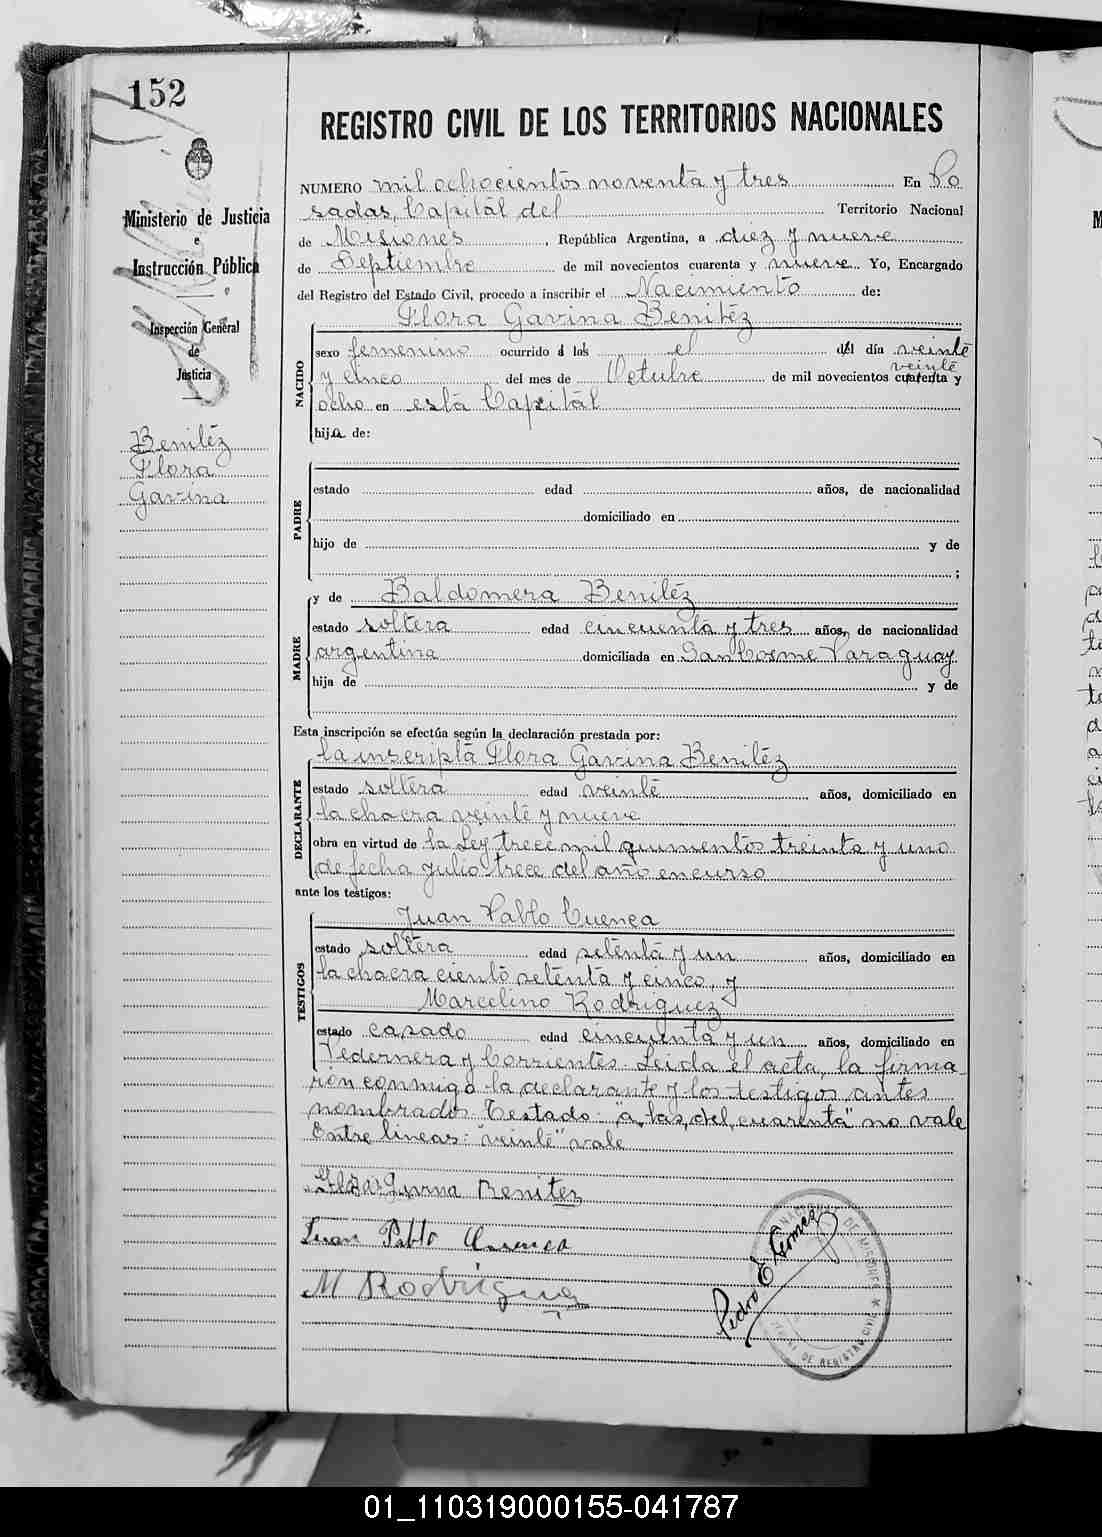 152
REGISTRO CIVIL DE LOS TERRITORIOS NACIONALES
Ministerio de Justicia
e
Instrucción Pública
Inspección General
de
Justicia
Benitéz
Flora
Gavina
NUMERO mil ochocientos noventa y tres En Po
sadas, Capital del Territorio Nacional
de Misiones, República Argentina, a diez y nueve
de Septiembre de mil novecientos cuarenta y nueve Yo, Encargado
del Registro del Estado Civil, procedo a inscribir el Nacimiento de:
Flora Gavina Benitéz
NACIDO
sexo femenino ocurrido á las el del día veinte
veinte
y cinco del mes de Octubre de mil novecientos cuarenta y
ocho en esta Capital
hija de:
PADRE
estado edad años, de nacionalidad
domiciliado en
hijo de y de
;
MADRE
y de Baldomera Benitéz
estado soltera edad cincuenta y tres años, de nacionalidad
argentina domiciliada en San Cosme Paraguay
hija de y de
Esta inscripción se efectúa según la declaración prestada por:
DECLARANTE
la inscripta Flora Gavina Benitéz
estado soltera edad veinte años, domiciliado en
la chacra veinte y nueve
obra en virtud de la Ley trece mil quinientos treinta y uno
de fecha julio trece del año en curso
ante los testigos:
TESTIGOS
Juan Pablo Cuenca
estado soltera edad setenta y un años, domiciliado en
la chacra ciento setenta y cinco, y
Marcelino Rodriguez
estado casado edad cincuenta y un años, domiciliado en
Pedernera y Corrientes. Leida el acta, la firma
rón conmigo la declarante y los testigos antes
nombrados. Testado: "a las, del, cuarenta" no vale
Entre lineas: "veinte" vale
Flora Gavina Benitez
Juan Pablo Cuenca
M Rodriguez
Pedro E Gomez
DE MISIONES
DE REGISTRO CIVIL
01_110319000155-041787